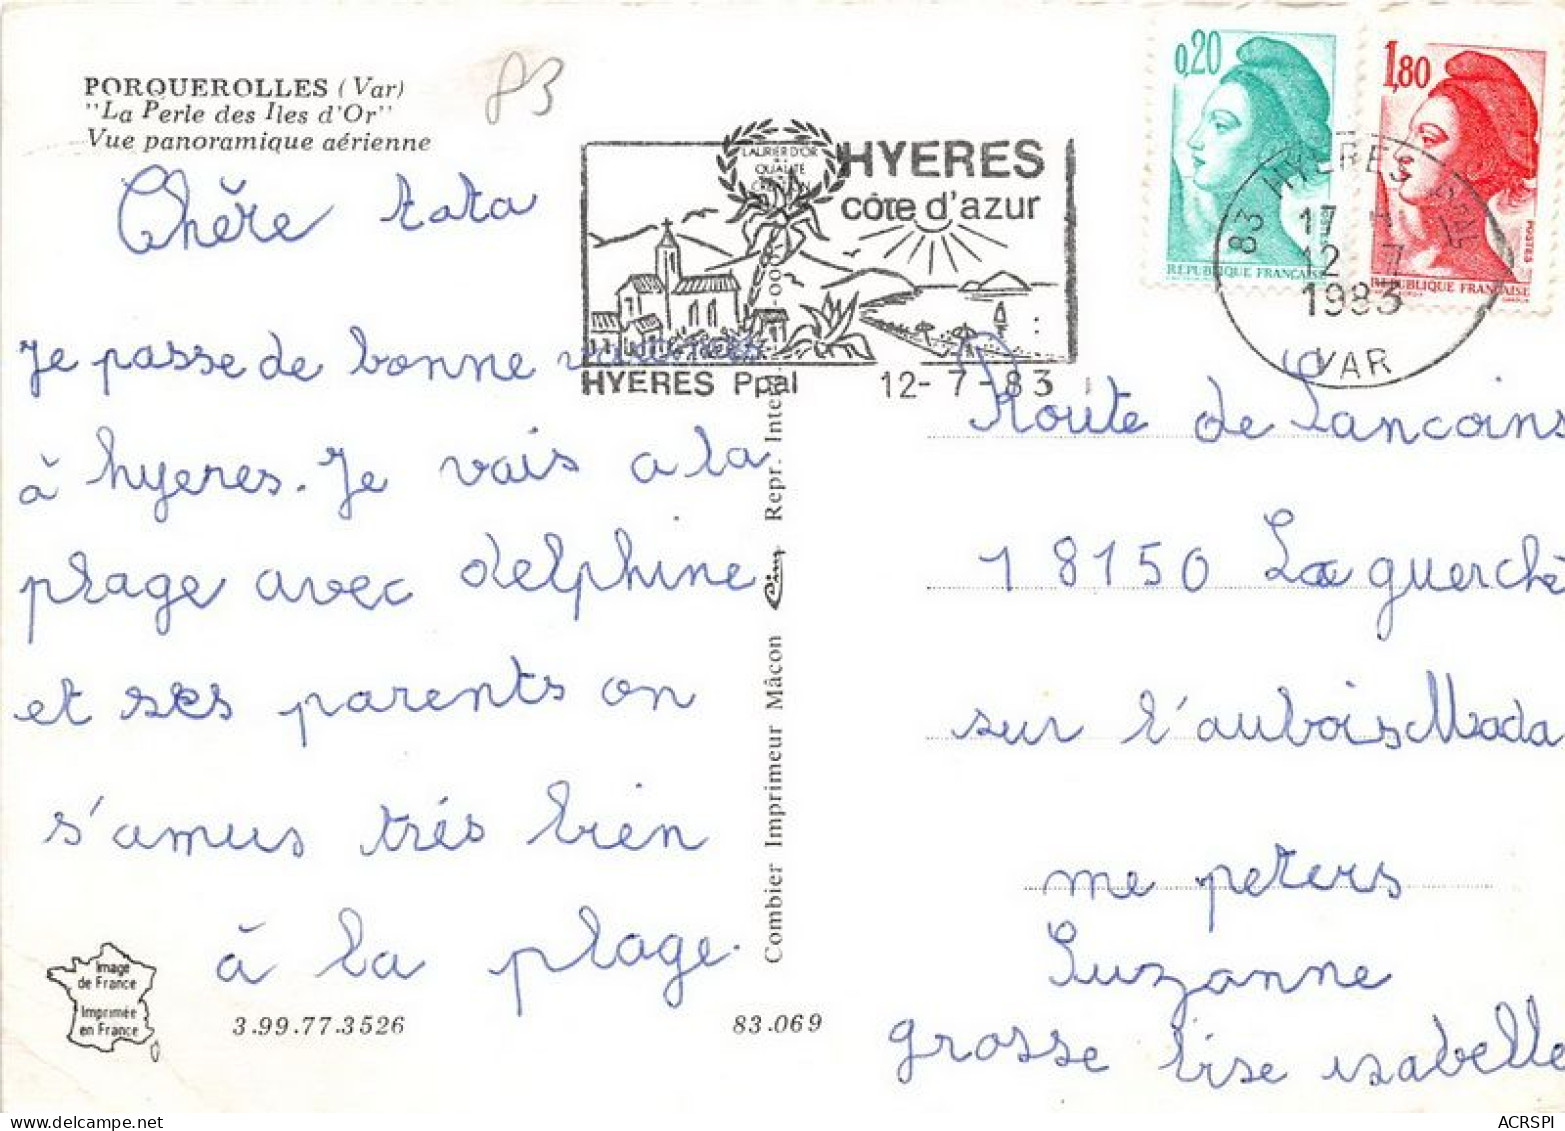 PORQUEROLLES (Var)
"La Perle des Iles d'Or"
Vue panoramique aérienne
83
Chère tata
Je passe de bonne
à hyeres. Je vais a la
plage avec delphine
et ses parents on
s'amus trés bien
à la plage.
Image
de France
Imprimée
en France
3.99.77.3526
83.069
Combier Imprimeur Mâcon Cim Repr. Inter
LAURIER D'OR
QUALITE
HYERES
côte d'azur
HYERES Ppal 12-7-83
0,20
REPUBLIQUE FRANÇAISE
1,80
POSTES
REPUBLIQUE FRANÇAISE
83 HYERES PPAL
17 H
12 7
1983
VAR
Route de Sancoins
18150 La guerche
sur l'aubois Mada
me peters
Suzanne
grosse bise isabelle
ACRSPI